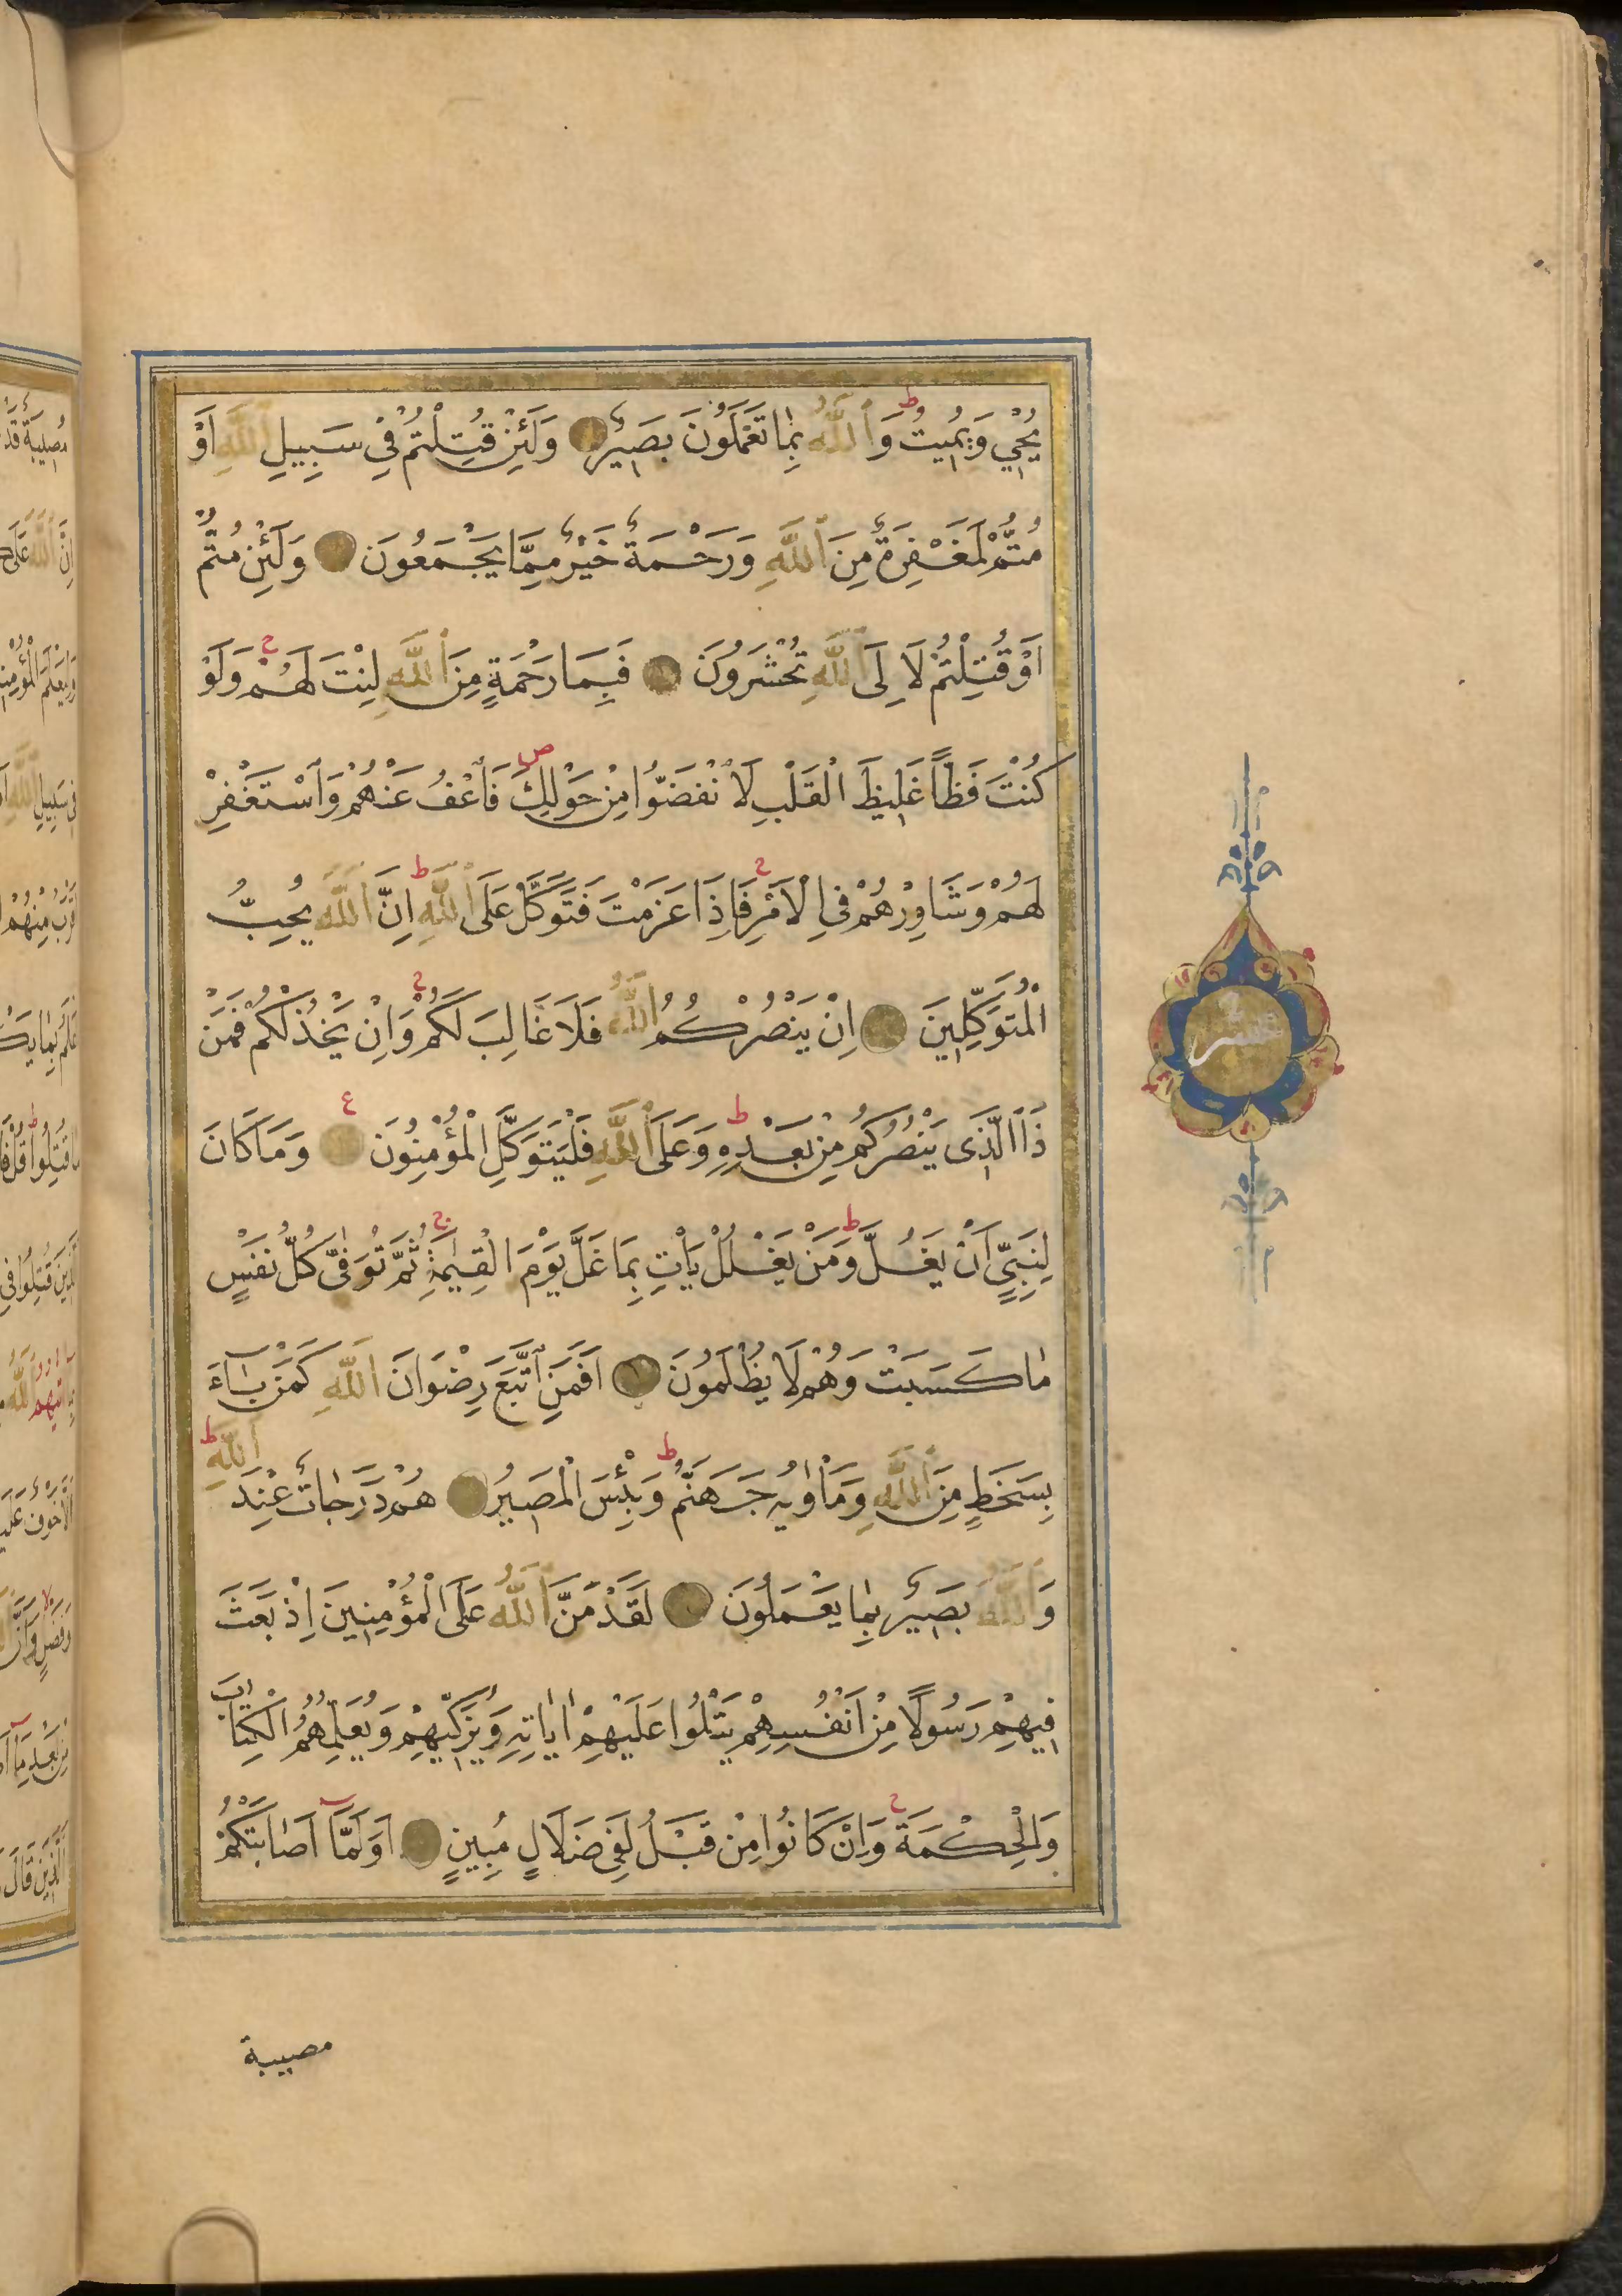 يُحْيِي وَيُمِيتُ ط وَٱللَّهُ بِمَا تَعْمَلُونَ بَصِيرٌ وَلَئِنْ قُتِلْتُمْ فِي سَبِيلِ ٱللَّهِ اَوْ
مُتُّمْ لَمَغْفِرَةٌ مِنَ ٱللَّهِ وَرَحْمَةٌ خَيْرٌ مِمَّا يَجْمَعُونَ وَلَئِنْ مُتُّمْ
اَوْ قُتِلْتُمْ لَاِلَى ٱللَّهِ تُحْشَرُونَ فَبِمَا رَحْمَةٍ مِنَ ٱللَّهِ لِنْتَ لَهُمْ ج وَلَوْ
كُنْتَ فَظًّا غَلِيظَ الْقَلْبِ لَانْفَضُّوا مِنْ حَوْلِكَ ص فَاعْفُ عَنْهُمْ وَٱسْتَغْفِرْ
لَهُمْ وَشَاوِرْهُمْ فِي الْاَمْرِ ج فَاِذَا عَزَمْتَ فَتَوَكَّلْ عَلَى ٱللَّهِ ط اِنَّ ٱللَّهَ يُحِبُّ
الْمُتَوَكِّلِينَ اِنْ يَنْصُرْكُمُ ٱللَّهُ فَلَا غَالِبَ لَكُمْ ج وَاِنْ يَخْذُلْكُمْ فَمَنْ
ذَا الَّذِى يَنْصُرُكُمْ مِنْ بَعْدِهِ ط وَعَلَى ٱللَّهِ فَلْيَتَوَكَّلِ الْمُؤْمِنُونَ ع وَمَا كَانَ
لِنَبِيٍّ اَنْ يَغُلَّ ط وَمَنْ يَغْلُلْ يَأْتِ بِمَا غَلَّ يَوْمَ الْقِيٰمَةِ ج ثُمَّ تُوَفّٰى كُلُّ نَفْسٍ
مَا كَسَبَتْ وَهُمْ لَا يُظْلَمُونَ اَفَمَنِ ٱتَّبَعَ رِضْوَانَ ٱللَّهِ كَمَنْ بَاءَ
بِسَخَطٍ مِنَ ٱللَّهِ وَمَأْوٰيهُ جَهَنَّمُ ط وَبِئْسَ الْمَصِيرُ هُمْ دَرَجَاتٌ عِنْدَ ٱللَّهِ ط
وَٱللَّهُ بَصِيرٌ بِمَا يَعْمَلُونَ لَقَدْ مَنَّ ٱللَّهُ عَلَى الْمُؤْمِنِينَ اِذْ بَعَثَ
فِيهِمْ رَسُولًا مِنْ اَنْفُسِهِمْ يَتْلُوا عَلَيْهِمْ اٰيَاتِهِ وَيُزَكِّيهِمْ وَيُعَلِّمُهُمُ الْكِتَابَ
وَالْحِكْمَةَ ج وَاِنْ كَانُوا مِنْ قَبْلُ لَفِي ضَلَالٍ مُبِينٍ اَوَلَمَّا اَصَابَتْكُمْ
مصيبة
عشر